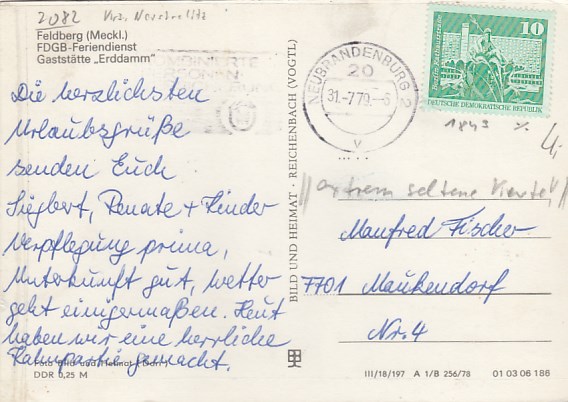 2082 Krs. Neustrelitz
Feldberg (Meckl.)
FDGB-Feriendienst
Gaststätte „Erddamm"
Die herzlichsten
Urlaubsgrüße
senden Euch
Siegbert, Renate + Kinder
Verpflegung prima,
Unterkunft gut, Wetter
geht einigermaßen. Heut
haben wir eine herrliche
Kahnpartie gemacht.
DDR 0,25 M
BILD UND HEIMAT · REICHENBACH (VOGTL)
NEUBRANDENBURG 2
20
31.-7.79.-6
V
10
DEUTSCHE DEMOKRATISCHE REPUBLIK
1843
extrem seltene Karte
Manfred Fischer
7701 Maukendorf
Nr. 4
III/18/197 A 1/B 256/78 01 03 06 186